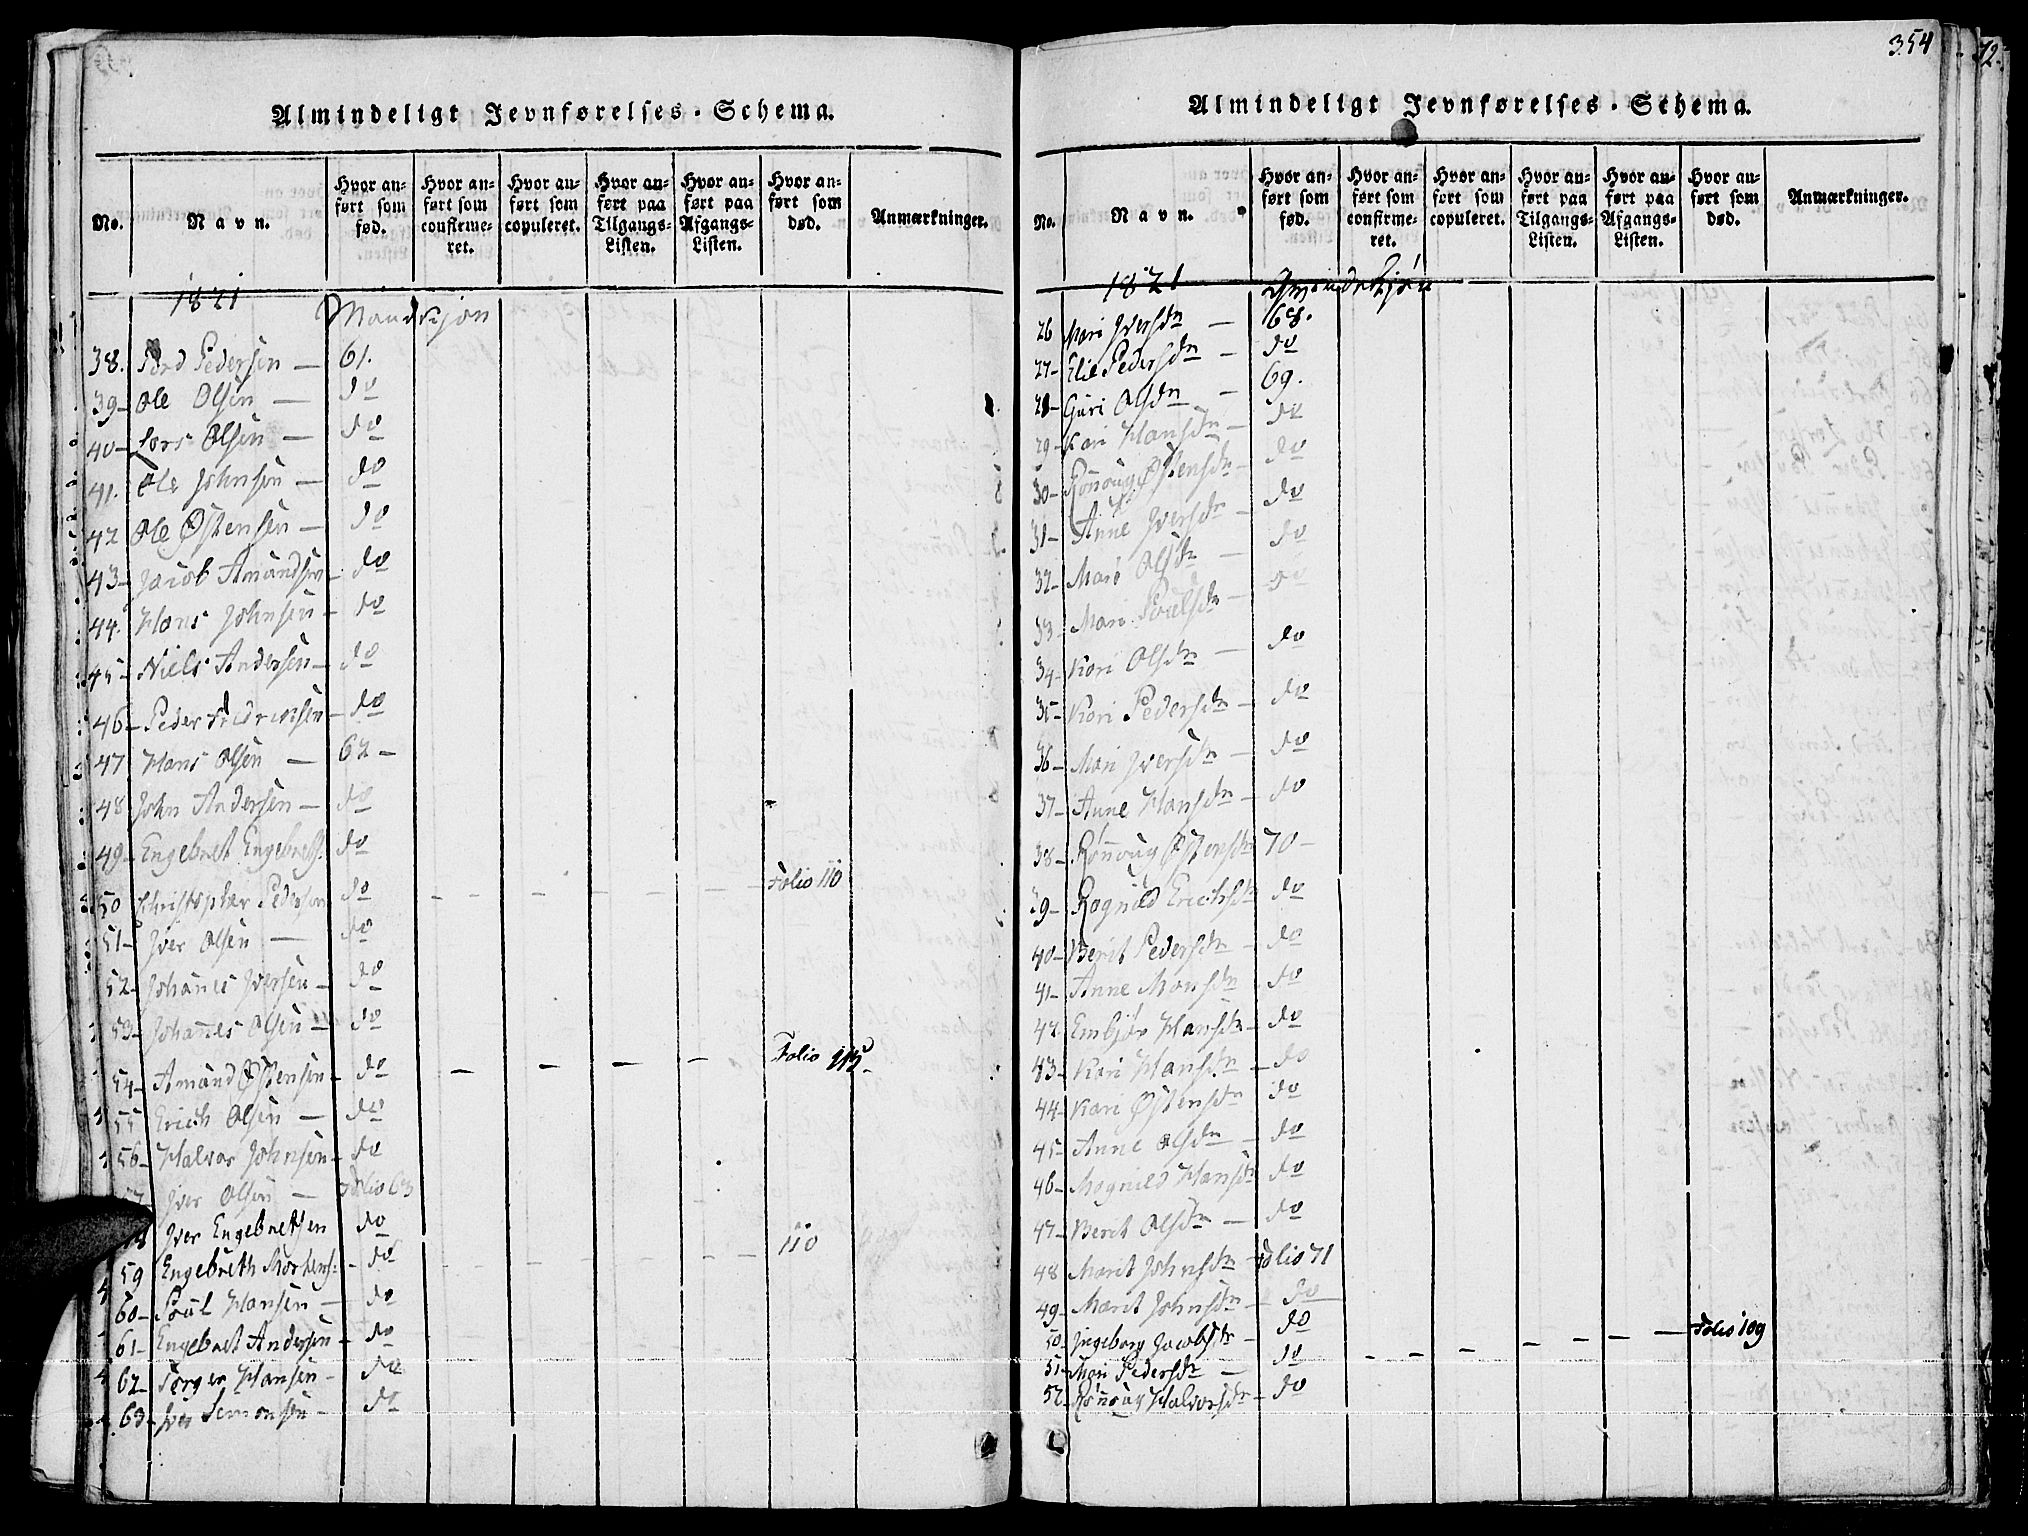 Almindeligt Jevnførelses-Schema.
No. Navn. Hvor anført som fød. Hvor anført som confirmeret. Hvor anført som copuleret. Hvor anført paa Tilgangs-Listen. Hvor anført paa Afgangs-Listen. Hvor anført som død. Anmærkninger.
1821 Mandkjøn
38. Tord Pedersen — 61.
39 - Ole Olsen — do
40 - Lars Olsen — do
41. Ole Johnsen — do
42 Ole Østensen — do
43 - Jacob Amundsen - do
44. Hans Johnsen - do
45 - Niels Andersen - do
46 - Peder Fredriksen - do
47 Hans Olsen — 62 -
48 John Andersen — do
49 - Engebret Engebrets. do
50 Christopher Pedersen do - - - - - Folio 110
51 - Iver Olsen — do
52 - Johanes Iversen - do
53 - Johannes Olsen - do
54 - Amund Østensen - do - - - - Folio 115
55 Erich Olsen — do
56 - Halvor Johnsen - do
57 Iver Olsen — Folio 63
58 Iver Engebretsen do
59 Engebreth Mortens: - do - - - - - 110
60 - Poul Hansen — do
61 - Engebret Andersen - do
62 - Torger Hansen - do
63 - Iver Semonsen - do
354
Almindeligt Jevnførelses-Schema.
No. Navn. Hvor anført som fød. Hvor anført som confirmeret. Hvor anført som copuleret. Hvor anført paa Tilgangs-Listen. Hvor anført paa Afgangs-Listen. Hvor anført som død. Anmærkninger.
1821 Qvindekjøn
26 Mari Iversdn — 68.
27 - Elie Pedersdn - do
28 - Guri Olsdn - 69.
29 - Kari Hansdn - do
30 - Rønoug Østensdn - do
31 - Anne Iversdn - do
32 - Mari Olsdn — do
33 - Mari Poulsdn - do
34 - Kari Olsdn — do
35 - Kari Pedersdn - do
36 - Mari Iversdn - do
37 - Anne Hansdn - do
38 - Rønoug Østensdn 70 -
39 - Rognild Erichsdn do
40 - Berit Pedersdn - do
41 - Anne Monsdn - do
42 - Embjør Hansdn - do
43 - Kari Hansdn - do
44 - Kari Østensdn do
45 - Anne Olsdn - do
46 - Magnild Hansdn do
47 - Berit Olsdn — do
48 Marit Johnsdn - Folio 71
49 - Marit Johnsdn - do
50 - Ingeborg Jacobsdr - do - - - - - - Folio 109
51 - Mari Pedersdn — do
52 - Rønoug Halvorsdn - do